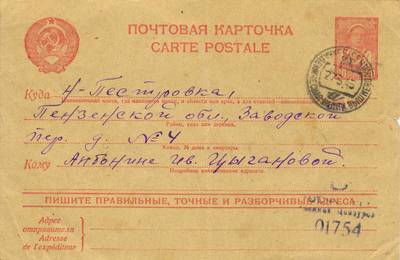 ПОЧТОВАЯ КАРТОЧКА
CARTE POSTALE
Куда Н-Пестровка,
Пензенской обл., Заводской
пер. д. №4
Кому Антонине Ив. Цыгановой.
ПИШИТЕ ПРАВИЛЬНЫЕ, ТОЧНЫЕ И РАЗБОРЧИВЫЕ АДРЕСА
Адрес
отправителя
Adresse
de l'expéditeur
01754